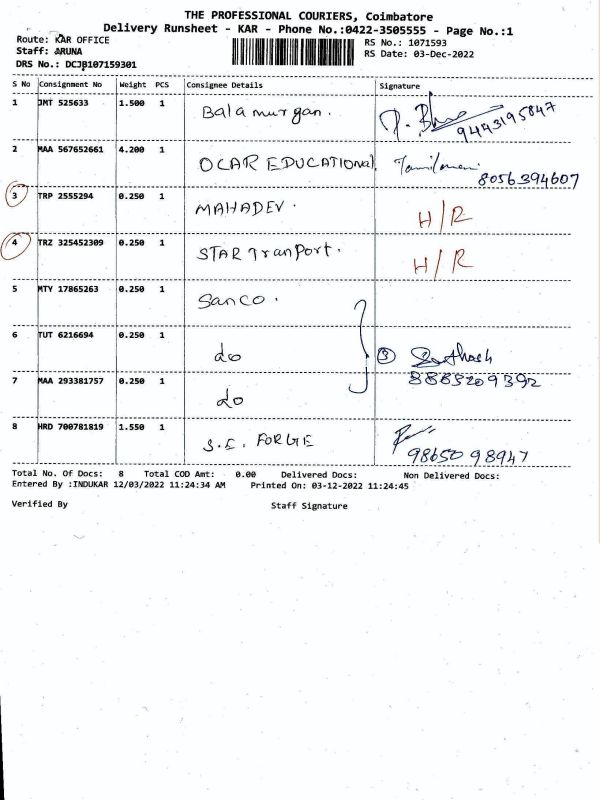 THE PROFESSIONAL COURIERS, Coimbatore
Delivery Runsheet - KAR - Phone No.:0422-3505555 - Page No.:1
Route: KAR OFFICE
RS No.: 1071593
Staff: ARUNA
RS Date: 03-Dec-2022
DRS No.: DCJB107159301
S No Consignment No Weight PCS Consignee Details Signature
1 JMT 525633 1.500 1 Balamurgan. 9443195847
2 MAA 567652661 4.200 1 OCAR EDUCATIONal, 8056394607
3 TRP 2555294 0.250 1 MAHADEV. H/R
4 TRZ 325452309 0.250 1 STAR Tranport. H/R
5 MTY 17865263 0.250 1 Sanco.
6 TUT 6216694 0.250 1 do 3
7 MAA 293381757 0.250 1 do
8 HRD 700781819 1.550 1 S.E. FORGE 98650 98947
Total No. Of Docs: 8 Total COD Amt: 0.00 Delivered Docs: Non Delivered Docs:
Entered By :INDUKAR 12/03/2022 11:24:34 AM Printed On: 03-12-2022 11:24:45
Verified By Staff Signature